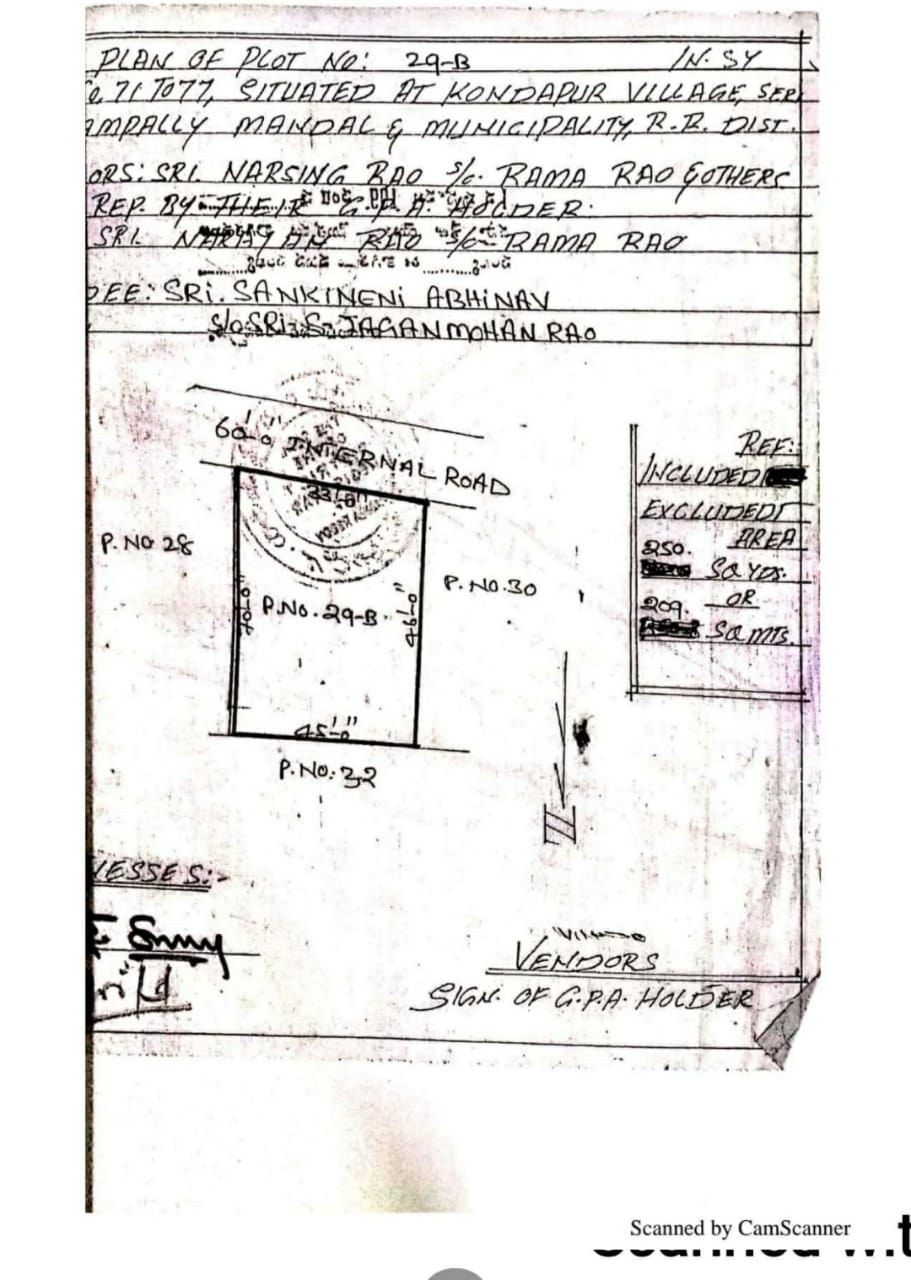 PLAN OF PLOT NO: 29-B IN. SY
71 TO 77, SITUATED AT KONDAPUR VILLAGE, SER
AMPALLY MANDAL & MUNICIPALITY, R.R. DIST.
ORS: SRI. NARSING RAO S/o. RAMA RAO & OTHERS
REP. BY THEIR G.P.A. HOLDER:
SRI. NARAYAN RAO S/o RAMA RAO
DEE: SRI. SANKINENI ABHINAV
S/o SRI: S. JAGAN MOHAN RAO
60'-0" INTERNAL ROAD
REF:
INCLUDED
EXCLUDED
AREA
250. SQ YDS.
OR
209. SQ MTS.
P. NO 28
P.NO. 29-B
46'-0"
P. NO. 30
45'-0"
P. NO: 32
NESSES:-
VENDORS
SIGN. OF G.P.A. HOLDER
Scanned by CamScanner